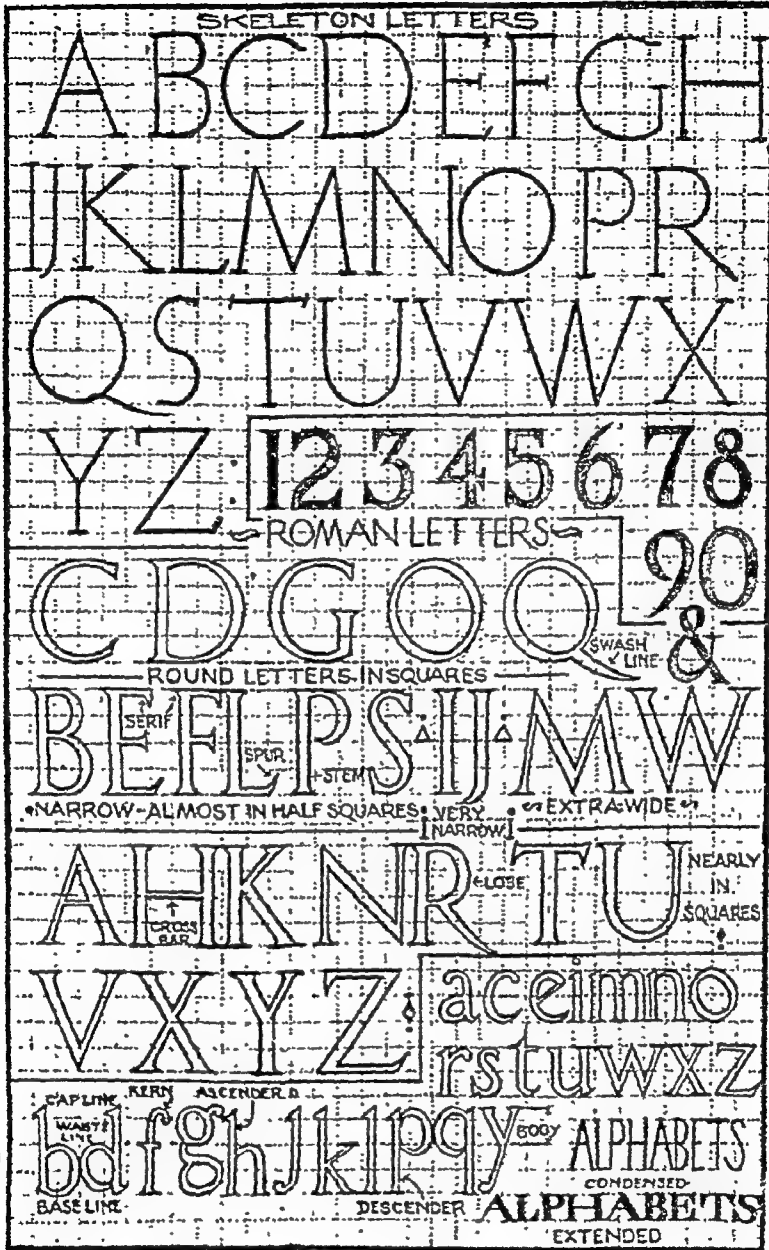 SKELETON LETTERS
A B C D E F G H
I J K L M N O P R
Q S T U V W X
Y Z
1 2 3 4 5 6 7 8
9 0
&
ROMAN LETTERS
C D G O Q
SWASH
LINE
ROUND LETTERS IN SQUARES
B E F L P S I J M W
SERIF
SPUR
STEM
NARROW-ALMOST IN HALF SQUARES
VERY
NARROW
EXTRA WIDE
A H K N R T U
CROSS
BAR
LOBE
NEARLY
IN
SQUARES
V X Y Z
a c e i m n o
r s t u w x z
CAP LINE
KERN
ASCENDER
b d f g h j k l p q y
WAIST
LINE
BODY
BASE LINE
DESCENDER
ALPHABETS
CONDENSED
ALPHABETS
EXTENDED